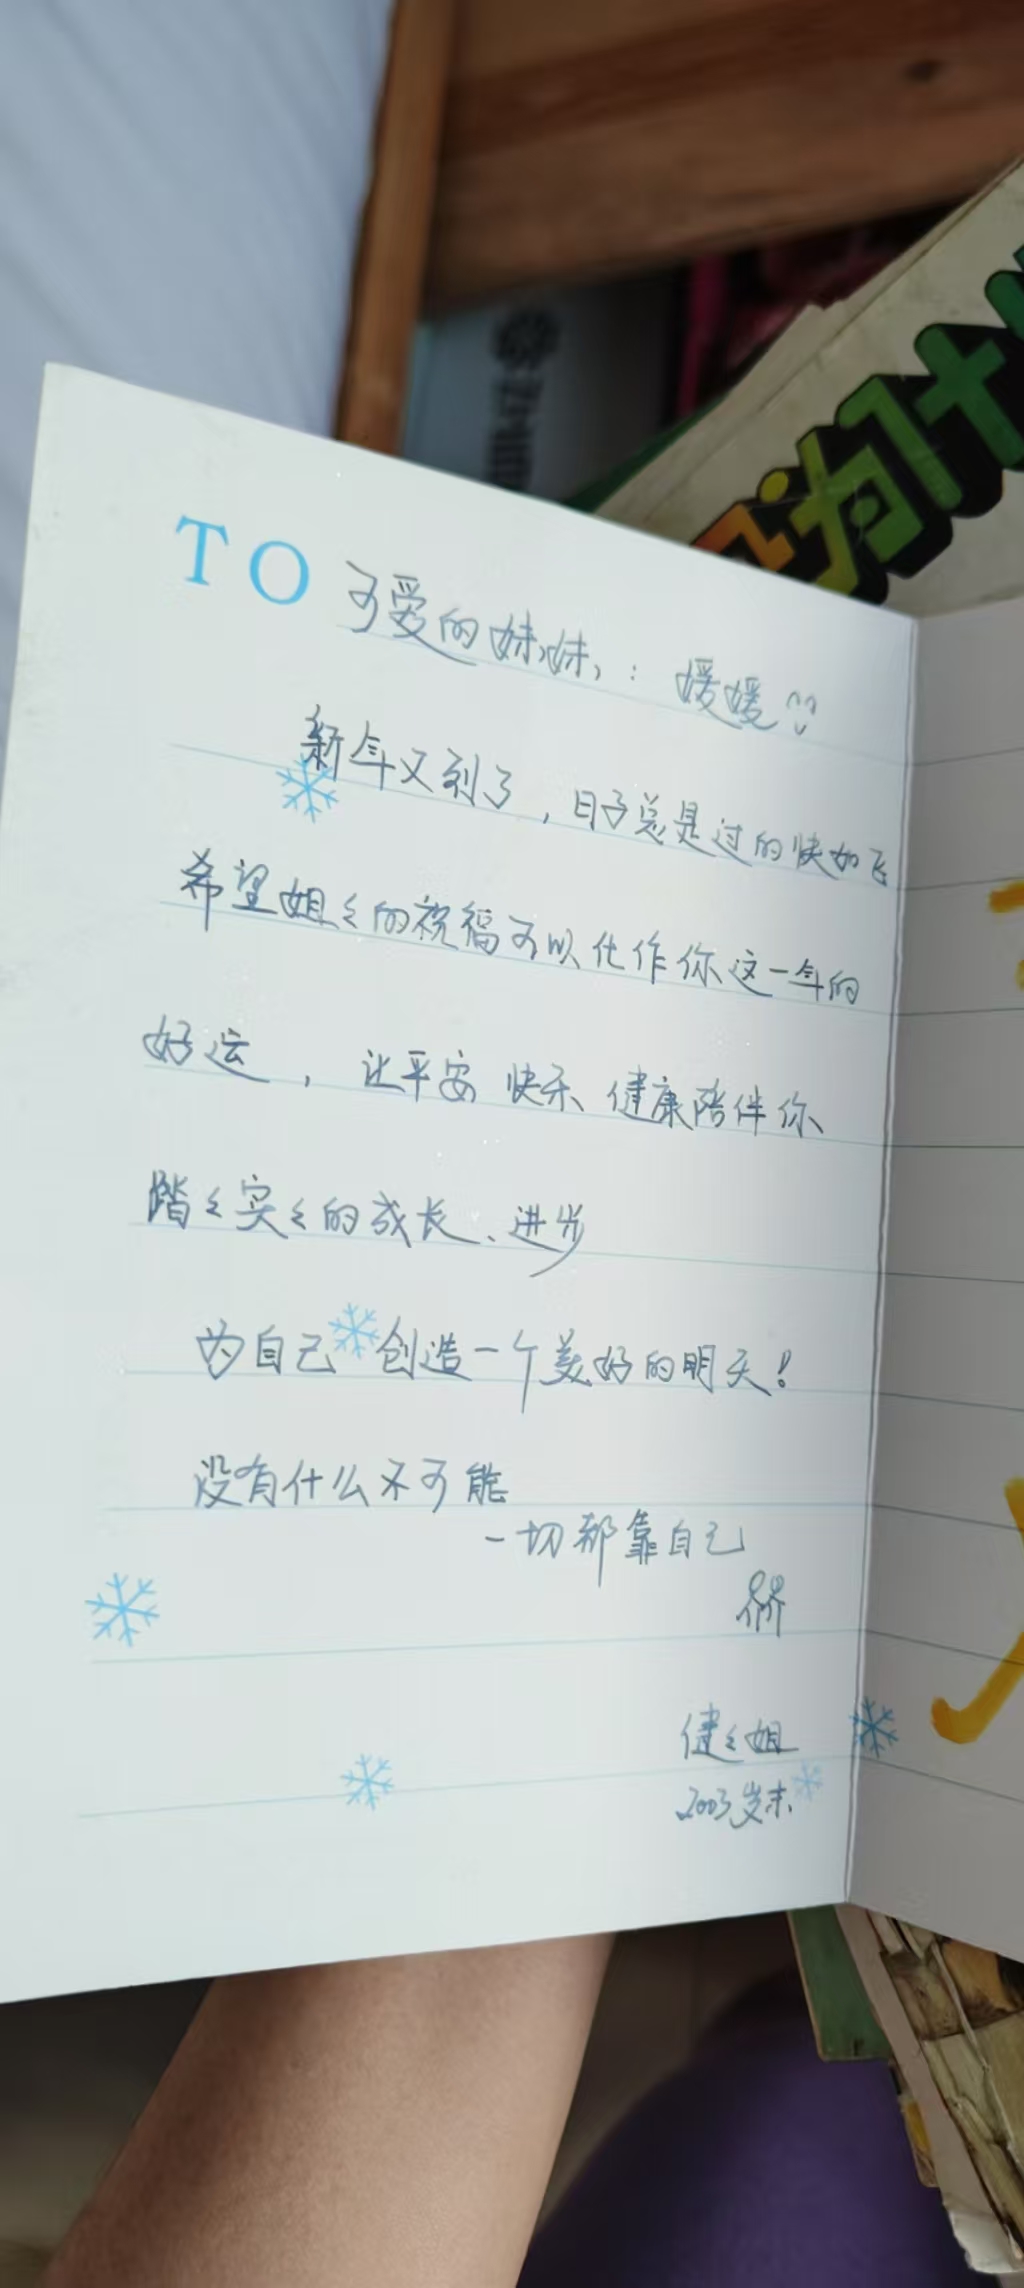 TO 可爱的妹妹：媛媛
新年又到了，日子总是过的快如飞
希望姐々的祝福可以化作你这一年的
好运，让平安 快乐、健康陪伴你
踏々实々的成长、进步
为自己创造一个美好的明天！
没有什么不可能
一切都靠自己
健々姐
2003岁末
为什